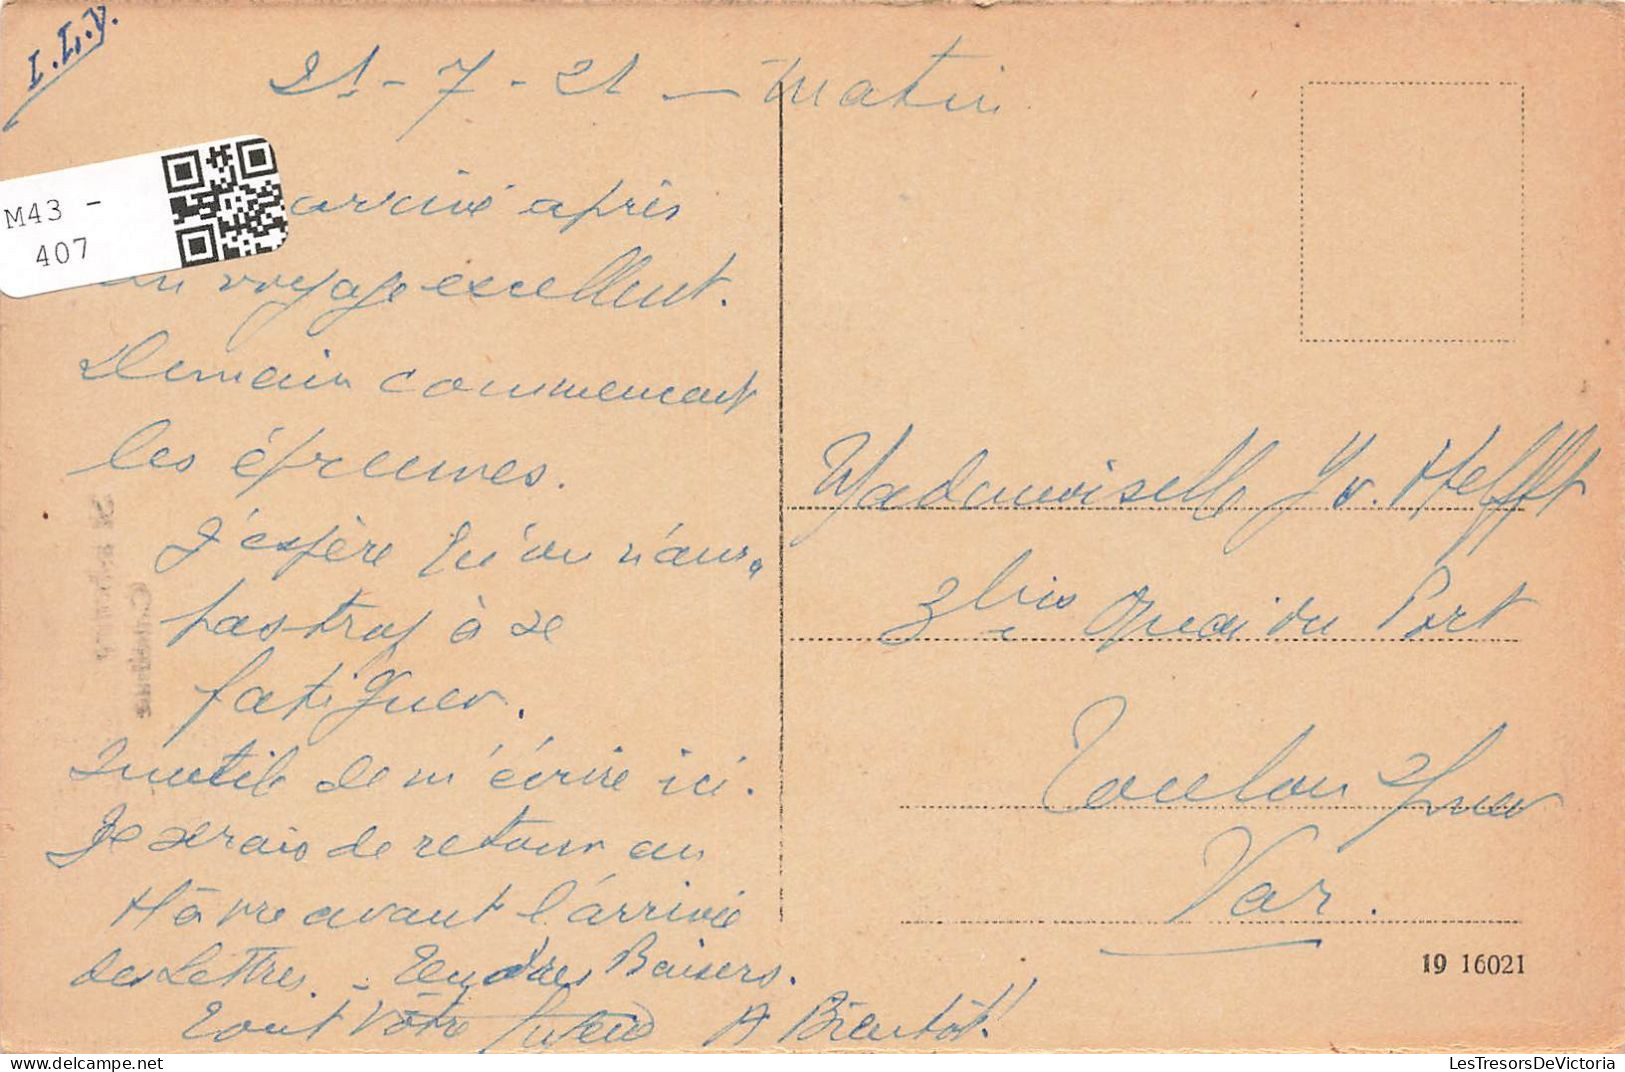 I.L.y.
21-7-21 - matin
M43 -
407
arrivé après
un voyage excellent.
Demain commencent
les épreuves.
J'espère qu'on n'aura
pas trop à se
fatiguer.
Inutile de m'écrire ici.
Je serais de retour au
Hâvre avant l'arrivée
des Lettres. - Tendres Baisers.
Tout Vôtre
A Bientôt!
Mademoiselle Yv. Helfft
3 bis Quai du Port
Toulon s/mer
Var.
19 16021
LesTresorsDeVictoria